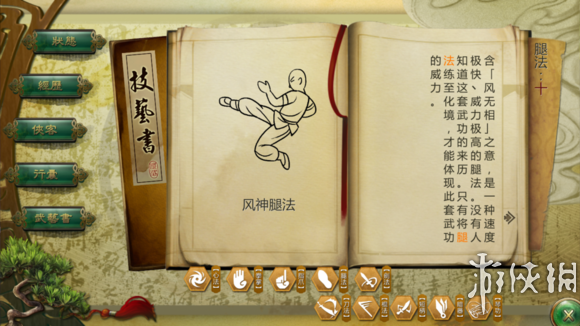 狀態
經歷
俠客
行囊
技藝書
技藝書
风神腿法
腿法：十
含「风无相」之意，是一种速度
极快、威力极高的腿法。没有人
知道这套武功的来历。只有将腿
法练至化境，才能体现此套武功
的威力。
游侠网